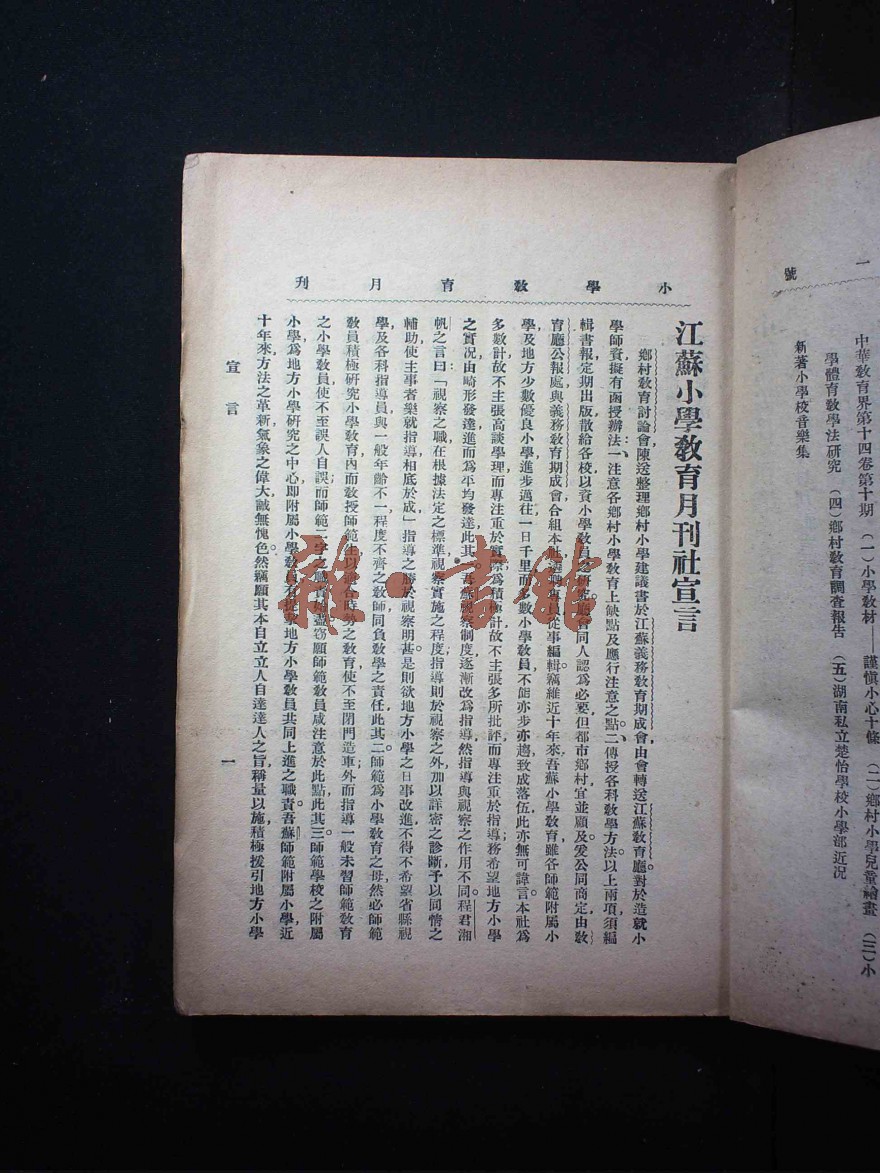 一號
中華敎育界第十四卷第十期 (一)小學敎材——謹愼小心十條 (二)鄕村小學兒童繪畫 (三)小
學體育敎學法研究 (四)鄕村敎育調查報告 (五)湖南私立楚怡學校小學部近况
新著小學校音樂集
小學敎育月刊
江蘇小學敎育月刊社宣言
鄕村敎育討論會陳送整理鄕村小學建議書於江蘇義務敎育期成會由會轉送江蘇敎育廳對於造就小
學師資擬有函授辦法一注意各鄕村小學敎育上缺點及應行注意之點二傳授各科敎學方法以上兩項須編
輯書報定期出版散給各校以資小學敎員之研究廳會同人認爲必要但都市鄕村宜並顧及爰公同商定由敎
育廳公報處與義務敎育期成會合組本社請專員從事編輯竊維近十年來吾蘇小學敎育雖各師範附屬小
學及地方少數優良小學進步邁往一日千里而多數小學敎員不能亦步亦趨致成落伍此亦無可諱言本社爲
多數計故不主張高談學理而專注重於實際爲積極計故不主張多所批評而專注重於指導務希望地方小學
之實况由畸形發達進而爲平均發達此其一吾蘇視察制度逐漸改爲指導然指導與視察之作用不同程君湘
帆之言曰「視察之職在根據法定之標準視察實施之程度指導則於視察之外加以詳密之診斷予以同情之
輔助使主事者樂就指導相底於成」指導之勝於視察明甚是則欲地方小學之日事改進不得不希望省縣視
學及各科指導員與一般年齡不一程度不齊之敎師同負敎學之責任此其二師範爲小學敎育之母然必師範
敎員積極研究小學敎育內而敎授師範生以適合時勢之敎育使不至閉門造車外而指導一般未習師範敎育
之小學敎員使不至誤人自誤而師範二字之職責始盡窃願師範敎員咸注意於此點此其三師範學校之附屬
小學爲地方小學研究之中心即附屬小學敎員有提挈地方小學敎員共同上進之職責吾蘇師範附屬小學近
十年來方法之革新氣象之偉大誠無愧色然竊願其本自立立人自達達人之旨稱量以施積極援引地方小學
宣言
一
雅書館